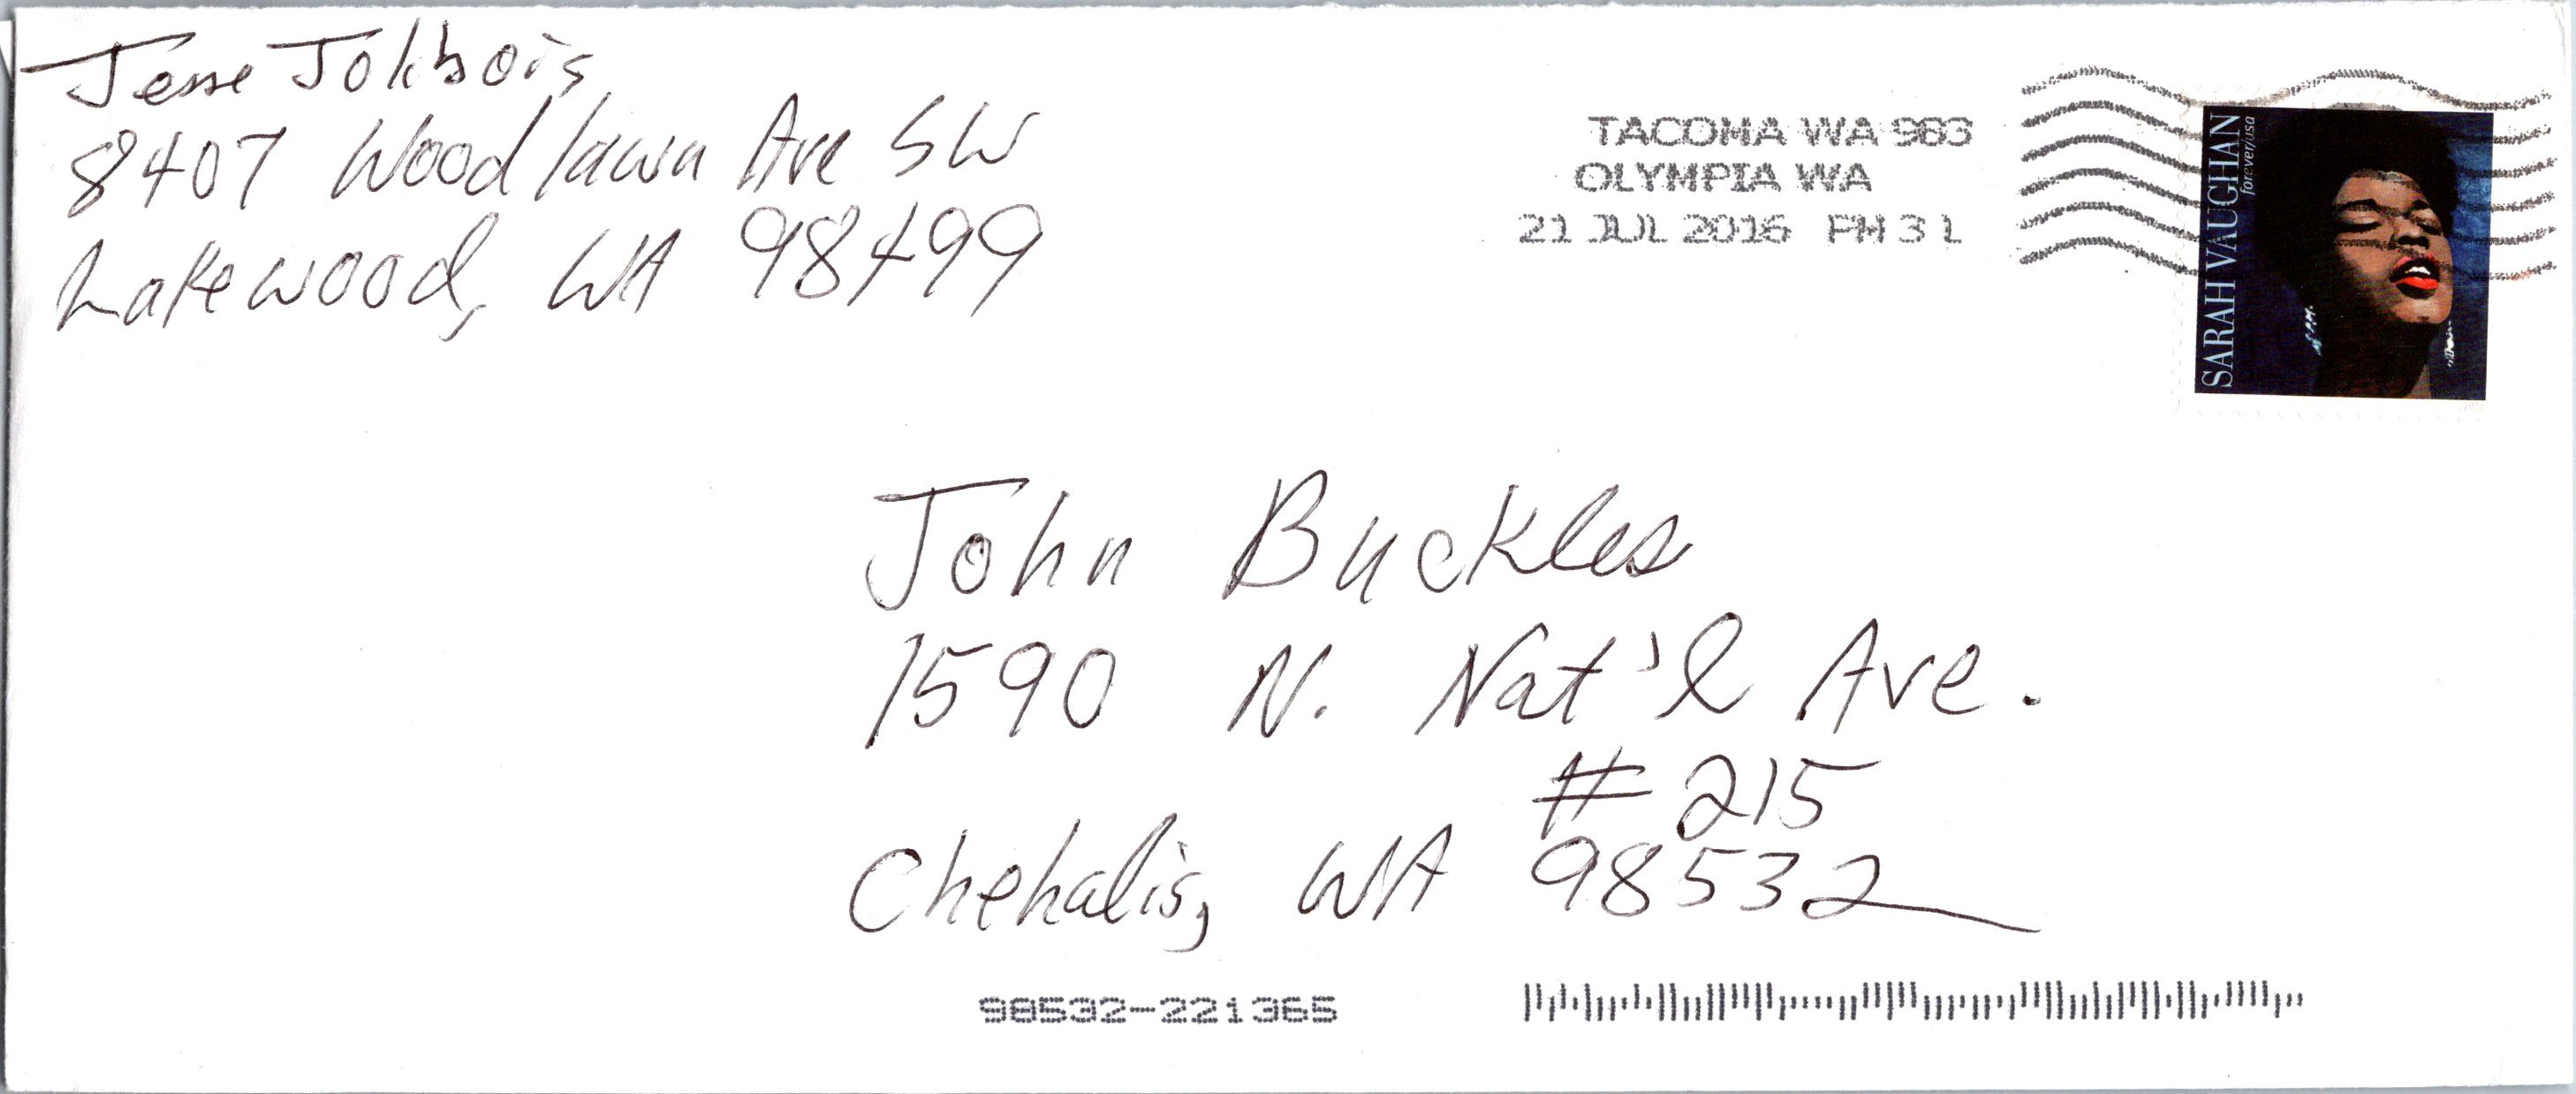 Jesse Jolibois
8407 Woodlawn Ave SW
Lakewood, WA 98499
TACOMA WA 983
OLYMPIA WA
21 JUL 2016 PM 3 L
SARAH VAUGHAN
forever/usa
John Buckles
1590 N. Nat'l Ave.
# 215
Chehalis, WA 98532
98532-221365